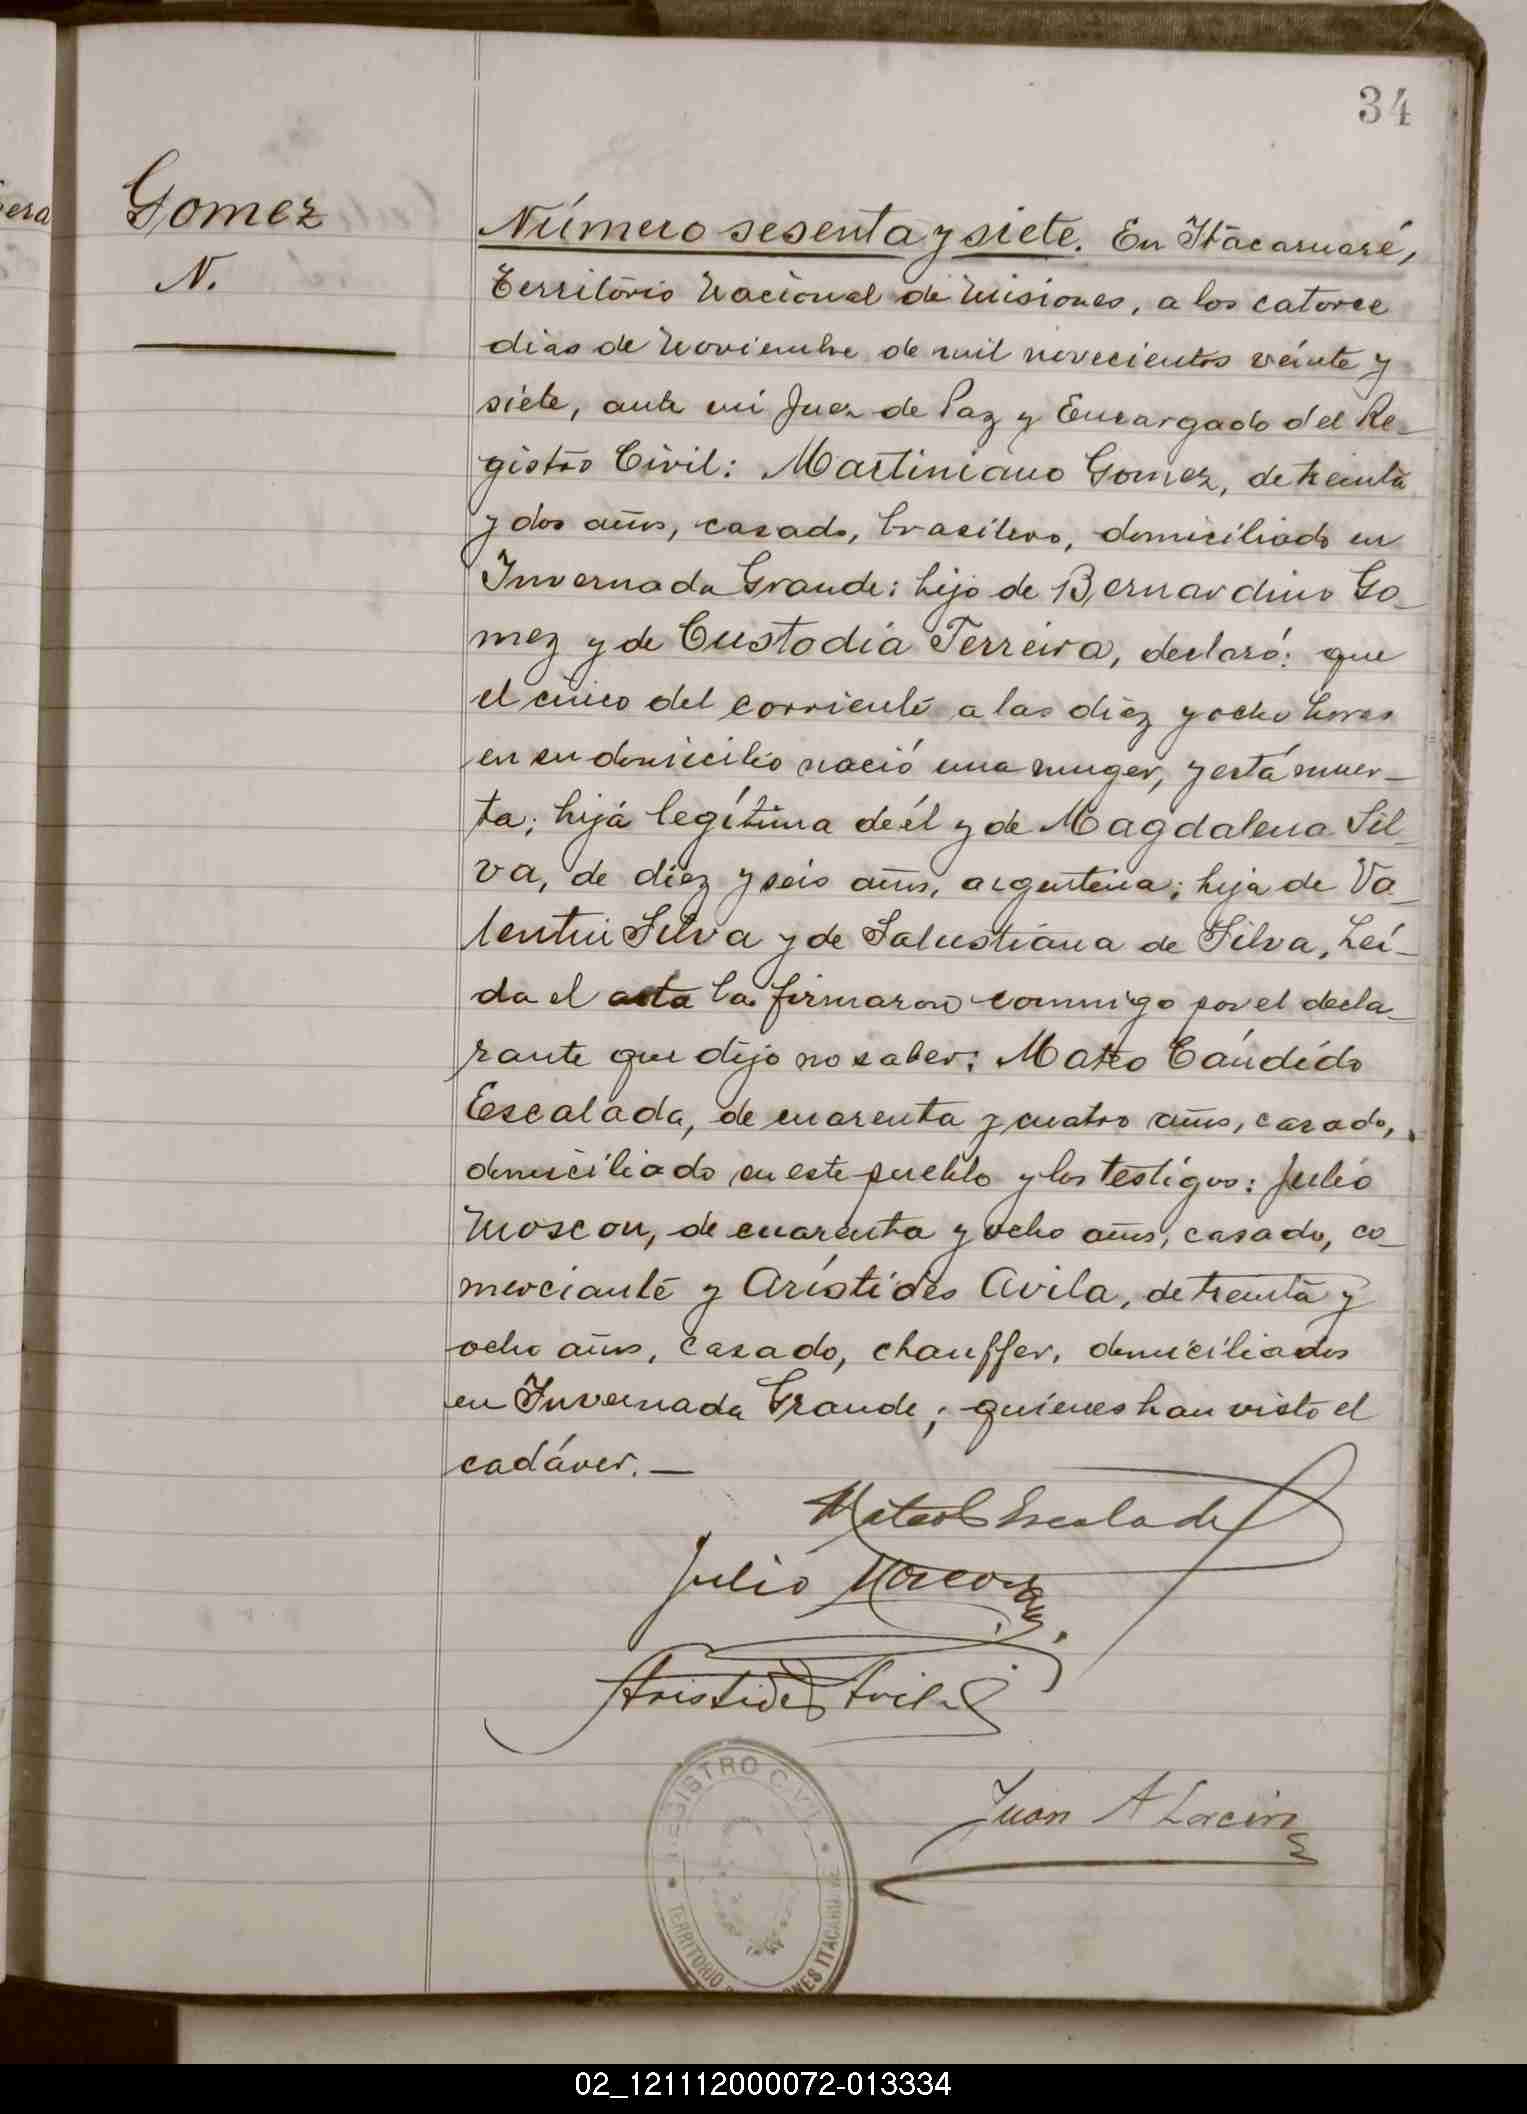 34
Gomez
N.
Número sesenta y siete. En Itacaruaré,
Territorio Nacional de Misiones, a los catorce
dias de Noviembre de mil novecientos veinte y
siete, ante mi Juez de Paz y Encargado del Re-
gistro Civil: Martiniano Gomez, de treinta
y dos años, casado, brasilero, domiciliado en
Invernada Grande: hijo de Bernardino Go-
mez y de Custodia Ferreira, declaró: que
el cinco del corriente a las diez y ocho horas
en su domicilio nació una muger, y está muer-
ta; hija legítima de él y de Magdalena Sil-
va, de diez y seis años, argentina; hija de Va-
lentin Silva y de Salustiana de Silva, Lei-
da el acta la firmaron conmigo por el decla-
rante que dijo no saber: Mateo Cándido
Escalada, de cuarenta y cuatro años, casado,
domiciliado en este pueblo y los testigos: Julio
Moscon, de cuarenta y ocho años, casado, co-
merciante y Arístides Avila, de treinta y
ocho años, casado, chauffer, domiciliados
en Invernada Grande; quienes han visto el
cadáver.—
Mateo C Escalada
Julio Moscon
Aristides Avila
REGISTRO CIVIL
Juan A
TERRITORIO MISIONES ITACARUARE
02_121112000072-013334